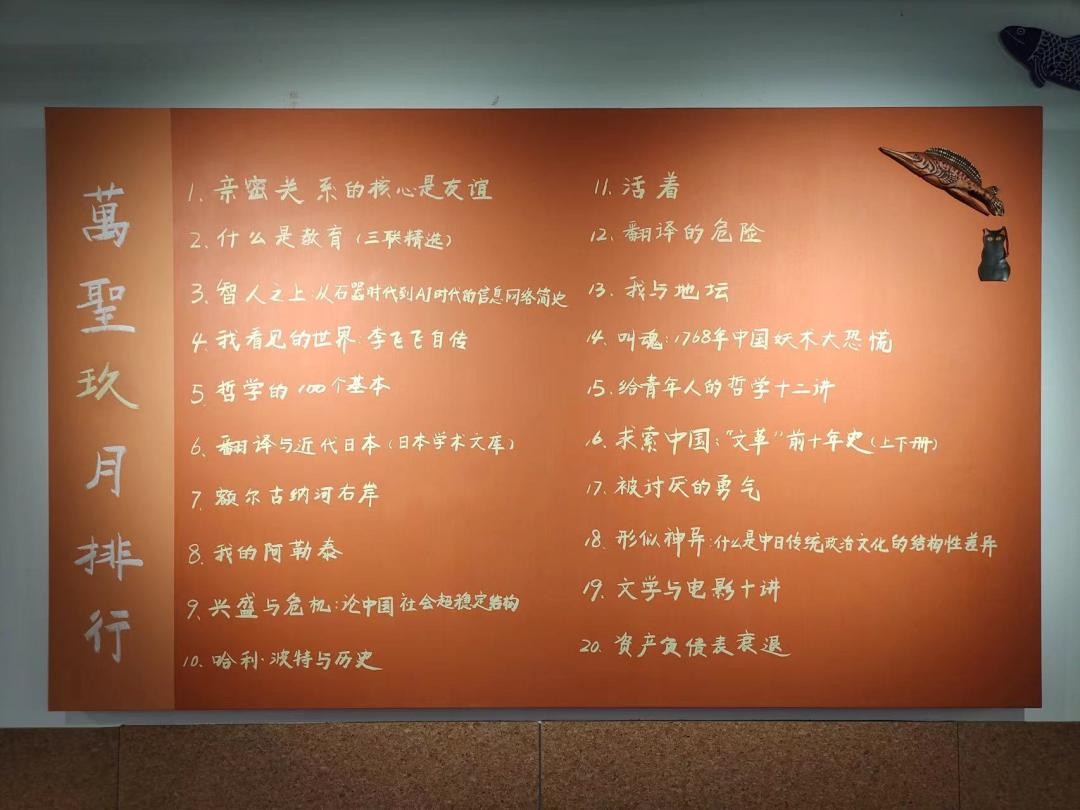 萬聖玖月排行
1. 亲密关系的核心是友谊
2. 什么是教育（三联精选）
3. 智人之上 从石器时代到AI时代的信息网络简史
4. 我看见的世界：李飞飞自传
5. 哲学的100个基本
6. 翻译与近代日本（日本学术文库）
7. 额尔古纳河右岸
8. 我的阿勒泰
9. 兴盛与危机：论中国社会超稳定结构
10. 哈利·波特与历史
11. 活着
12. 翻译的危险
13. 我与地坛
14. 叫魂：1768年中国妖术大恐慌
15. 给青年人的哲学十二讲
16. 求索中国：“文革”前十年史（上下册）
17. 被讨厌的勇气
18. 形似神异：什么是中日传统政治文化的结构性差异
19. 文学与电影十讲
20. 资产负债表衰退